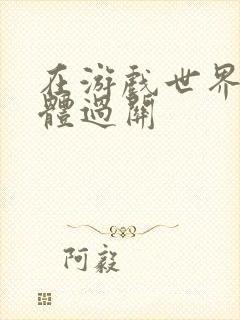 在游戲世界
體過關
阿毅